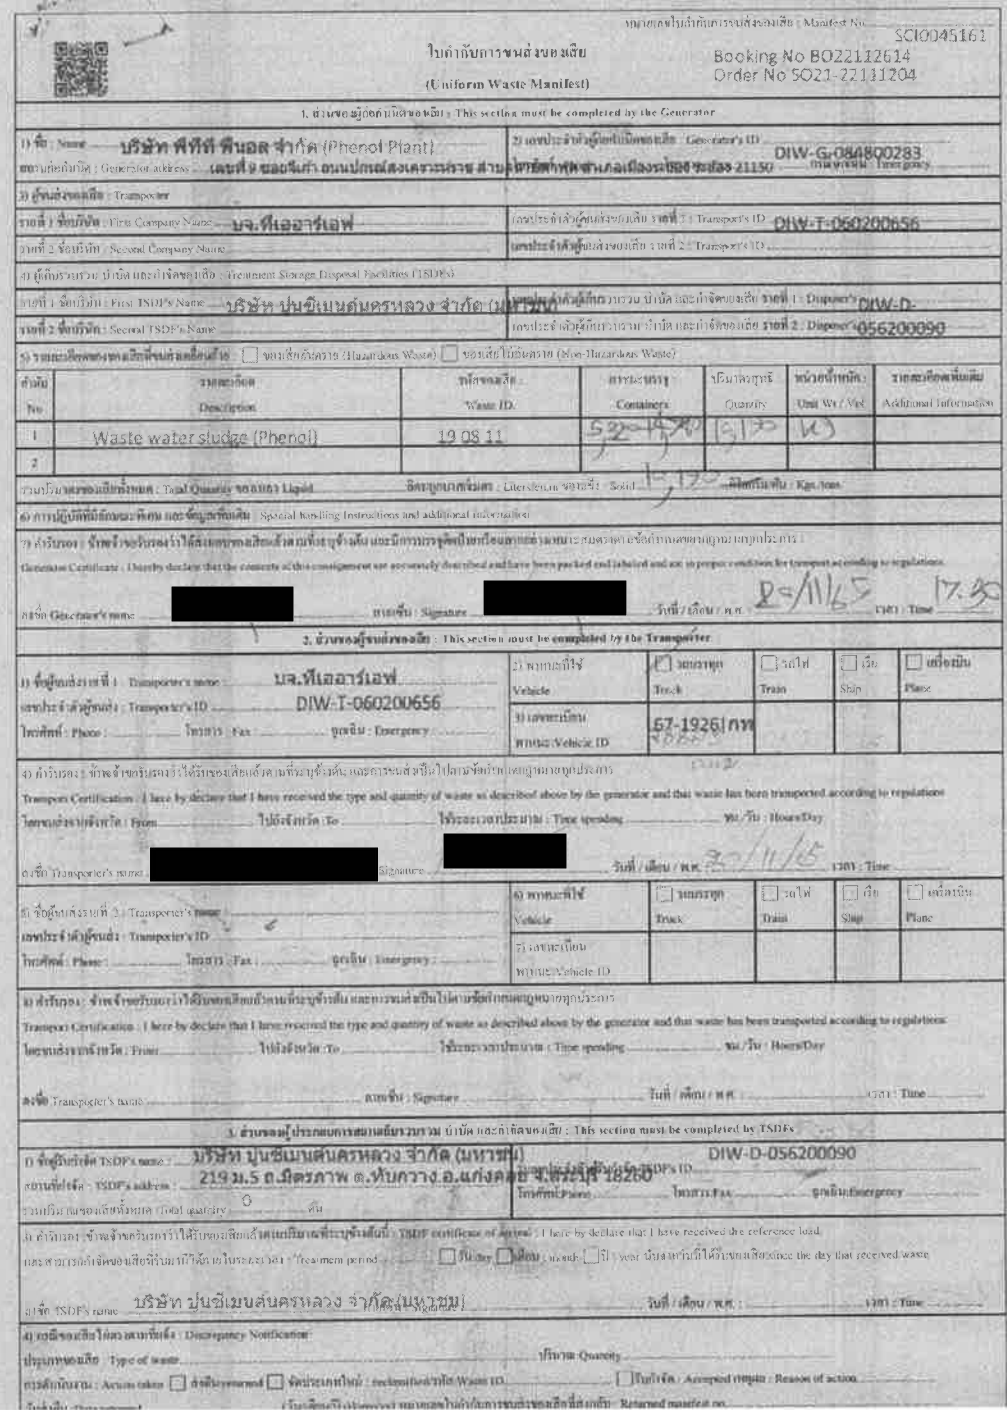 หมายเลขใบกำกับการขนส่งของเสีย : Manifest No.
SCI0045161
ใบกำกับการขนส่งของเสีย
Booking No BO22112614
(Uniform Waste Manifest)
Order No SO21-22111204
1. ส่วนของผู้ก่อกำเนิดของเสีย : This section must be completed by the Generator
1) ชื่อ : Name บริษัท พีทีที ฟีนอล จำกัด (Phenol Plant)
2) เลขประจำตัวผู้ก่อกำเนิดของเสีย : Generator's ID DIW-G-084800283
สถานที่ก่อกำเนิด : Generator address เลขที่ 9 ซอยจีเก้า ถนนปกรณ์สงเคราะห์ราษฎร์ อำเภอเมืองระยอง ระยอง 21150
3) ผู้ขนส่งของเสีย : Transporter
รายที่ 1 ชื่อบริษัท : First Company Name บจ.ทีเออาร์เอฟ
เลขประจำตัวผู้ขนส่งของเสีย รายที่ 1 : Transport's ID DIW-T-060200656
รายที่ 2 ชื่อบริษัท : Second Company Name
เลขประจำตัวผู้ขนส่งของเสีย รายที่ 2 : Transport's ID
4) ผู้เก็บรวบรวม บำบัด และกำจัดของเสีย : Treatment Storage Disposal Facilities (TSDFs)
รายที่ 1 ชื่อบริษัท : First TSDF's Name บริษัท ปูนซีเมนต์นครหลวง จำกัด (มหาชน)
เลขประจำตัวผู้เก็บรวบรวม บำบัด และกำจัดของเสีย รายที่ 1 : Disposer's DIW-D-
รายที่ 2 ชื่อบริษัท : Second TSDF's Name
เลขประจำตัวผู้เก็บรวบรวม บำบัด และกำจัดของเสีย รายที่ 2 : Disposer's 056200090
5) รายละเอียดของของเสียที่ขนส่งเคลื่อนย้าย : ของเสียอันตราย (Hazardous Waste) ของเสียไม่อันตราย (Non-Hazardous Waste)
ลำดับ รายละเอียด รหัสของเสีย : ภาชนะบรรจุ : ปริมาตรสุทธิ หน่วยน้ำหนัก : รายละเอียดเพิ่มเติม
No Description Waste ID. Containers Quantity Unit Wt / Vol Additional Information
1 Waste water sludge (Phenol) 19 08 11
2
รวมปริมาณของเสียทั้งหมด : Total Quantity ของเหลว Liquid ลิตร/ลูกบาศก์เมตร : Liters/cu.m ของแข็ง : Solid กิโลกรัม/ตัน : Kgs./tons
6) การปฏิบัติที่มีลักษณะพิเศษ และข้อมูลเพิ่มเติม : Special handling Instructions and additional information
Generator Certificate : I hereby declare that the contents of this consignment are accurately described and have been packed and labeled and are in proper condition for transport according to regulations.
ลงชื่อ Generator's name ลายเซ็น : Signature วันที่ / เดือน / พ.ศ. 20/11/65 เวลา : Time 17.30
2. ส่วนของผู้ขนส่งของเสีย : This section must be completed by the Transporter
1) ชื่อผู้ขนส่งรายที่ 1 Transporter's name : บจ.ทีเออาร์เอฟ
2) พาหนะที่ใช้ รถบรรทุก รถไฟ เรือ เครื่องบิน
Vehicle Truck Train Ship Plane
เลขประจำตัวผู้ขนส่ง : Transporter's ID DIW-T-060200656
3) เลขทะเบียน 67-1926 กท
โทรศัพท์ : Phone : โทรสาร : Fax : ฉุกเฉิน : Emergency
พาหนะ Vehicle ID
4) คำรับรอง : ข้าพเจ้าขอรับรองว่าได้รับของเสียแล้วตามที่ระบุข้างต้น และการขนส่งเป็นไปตามข้อกำหนดกฎหมายทุกประการ
Transport Certification : I here by declare that I have received the type and quantity of waste as described above by the generator and that waste has been transported according to regulations
โดยขนส่งจากจังหวัด : From ไปยังจังหวัด : To ใช้ระยะเวลาประมาณ : Time spending ชม./วัน : Hours/Day
ลงชื่อ Transporter's name Signature วันที่ / เดือน / พ.ศ. 20/11/65 เวลา : Time
5) ชื่อผู้ขนส่งรายที่ 2 : Transporter's name
6) พาหนะที่ใช้ รถบรรทุก รถไฟ เรือ เครื่องบิน
Vehicle Truck Train Ship Plane
เลขประจำตัวผู้ขนส่ง : Transporter's ID
7) เลขทะเบียน
โทรศัพท์ : Phone : โทรสาร : Fax : ฉุกเฉิน : Emergency :
พาหนะ Vehicle ID
8) คำรับรอง : ข้าพเจ้าขอรับรองว่าได้รับของเสียแล้วตามที่ระบุข้างต้น และการขนส่งเป็นไปตามข้อกำหนดกฎหมายทุกประการ
Transport Certification : I here by declare that I have received the type and quantity of waste as described above by the generator and that waste has been transported according to regulations
โดยขนส่งจากจังหวัด : From ไปยังจังหวัด : To ใช้ระยะเวลาประมาณ : Time spending ชม./วัน : Hours/Day
ลงชื่อ Transporter's name ลายเซ็น : Signature วันที่ / เดือน / พ.ศ. เวลา : Time
3. ส่วนของผู้ประกอบการสถานเก็บรวบรวม บำบัด และกำจัดของเสีย : This section must be completed by TSDFs
1) ชื่อผู้รับกำจัด TSDF's name : บริษัท ปูนซีเมนต์นครหลวง จำกัด (มหาชน) TSDF's ID DIW-D-056200090
สถานที่กำจัด : TSDF's address 219 ม.5 ถ.มิตรภาพ ต.ทับกวาง อ.แก่งคอย จ.สระบุรี 18260
โทรศัพท์:Phone โทรสาร:Fax ฉุกเฉิน:Emergency
รวมปริมาณของเสียทั้งหมด : Total quantity 0 ตัน
TSDF certificate of arrival : I here by declare that I have received the reference load
Treatment period วัน:day เดือน : month ปี : year นับจากวันที่ได้รับของเสีย:since the day that received waste
ลงชื่อ TSDF's name บริษัท ปูนซีเมนต์นครหลวง จำกัด (มหาชน) วันที่ / เดือน / พ.ศ. : เวลา : Time
4) กรณีของเสียไม่ตรงตามที่แจ้ง : Discrepancy Notification
ประเภทของเสีย Type of waste ปริมาณ Quantity
การดำเนินงาน : Action taken ส่งคืน:returned จัดประเภทใหม่ : reclassified/รหัส Waste ID. รับกำจัด : Accepted เหตุผล : Reason of action